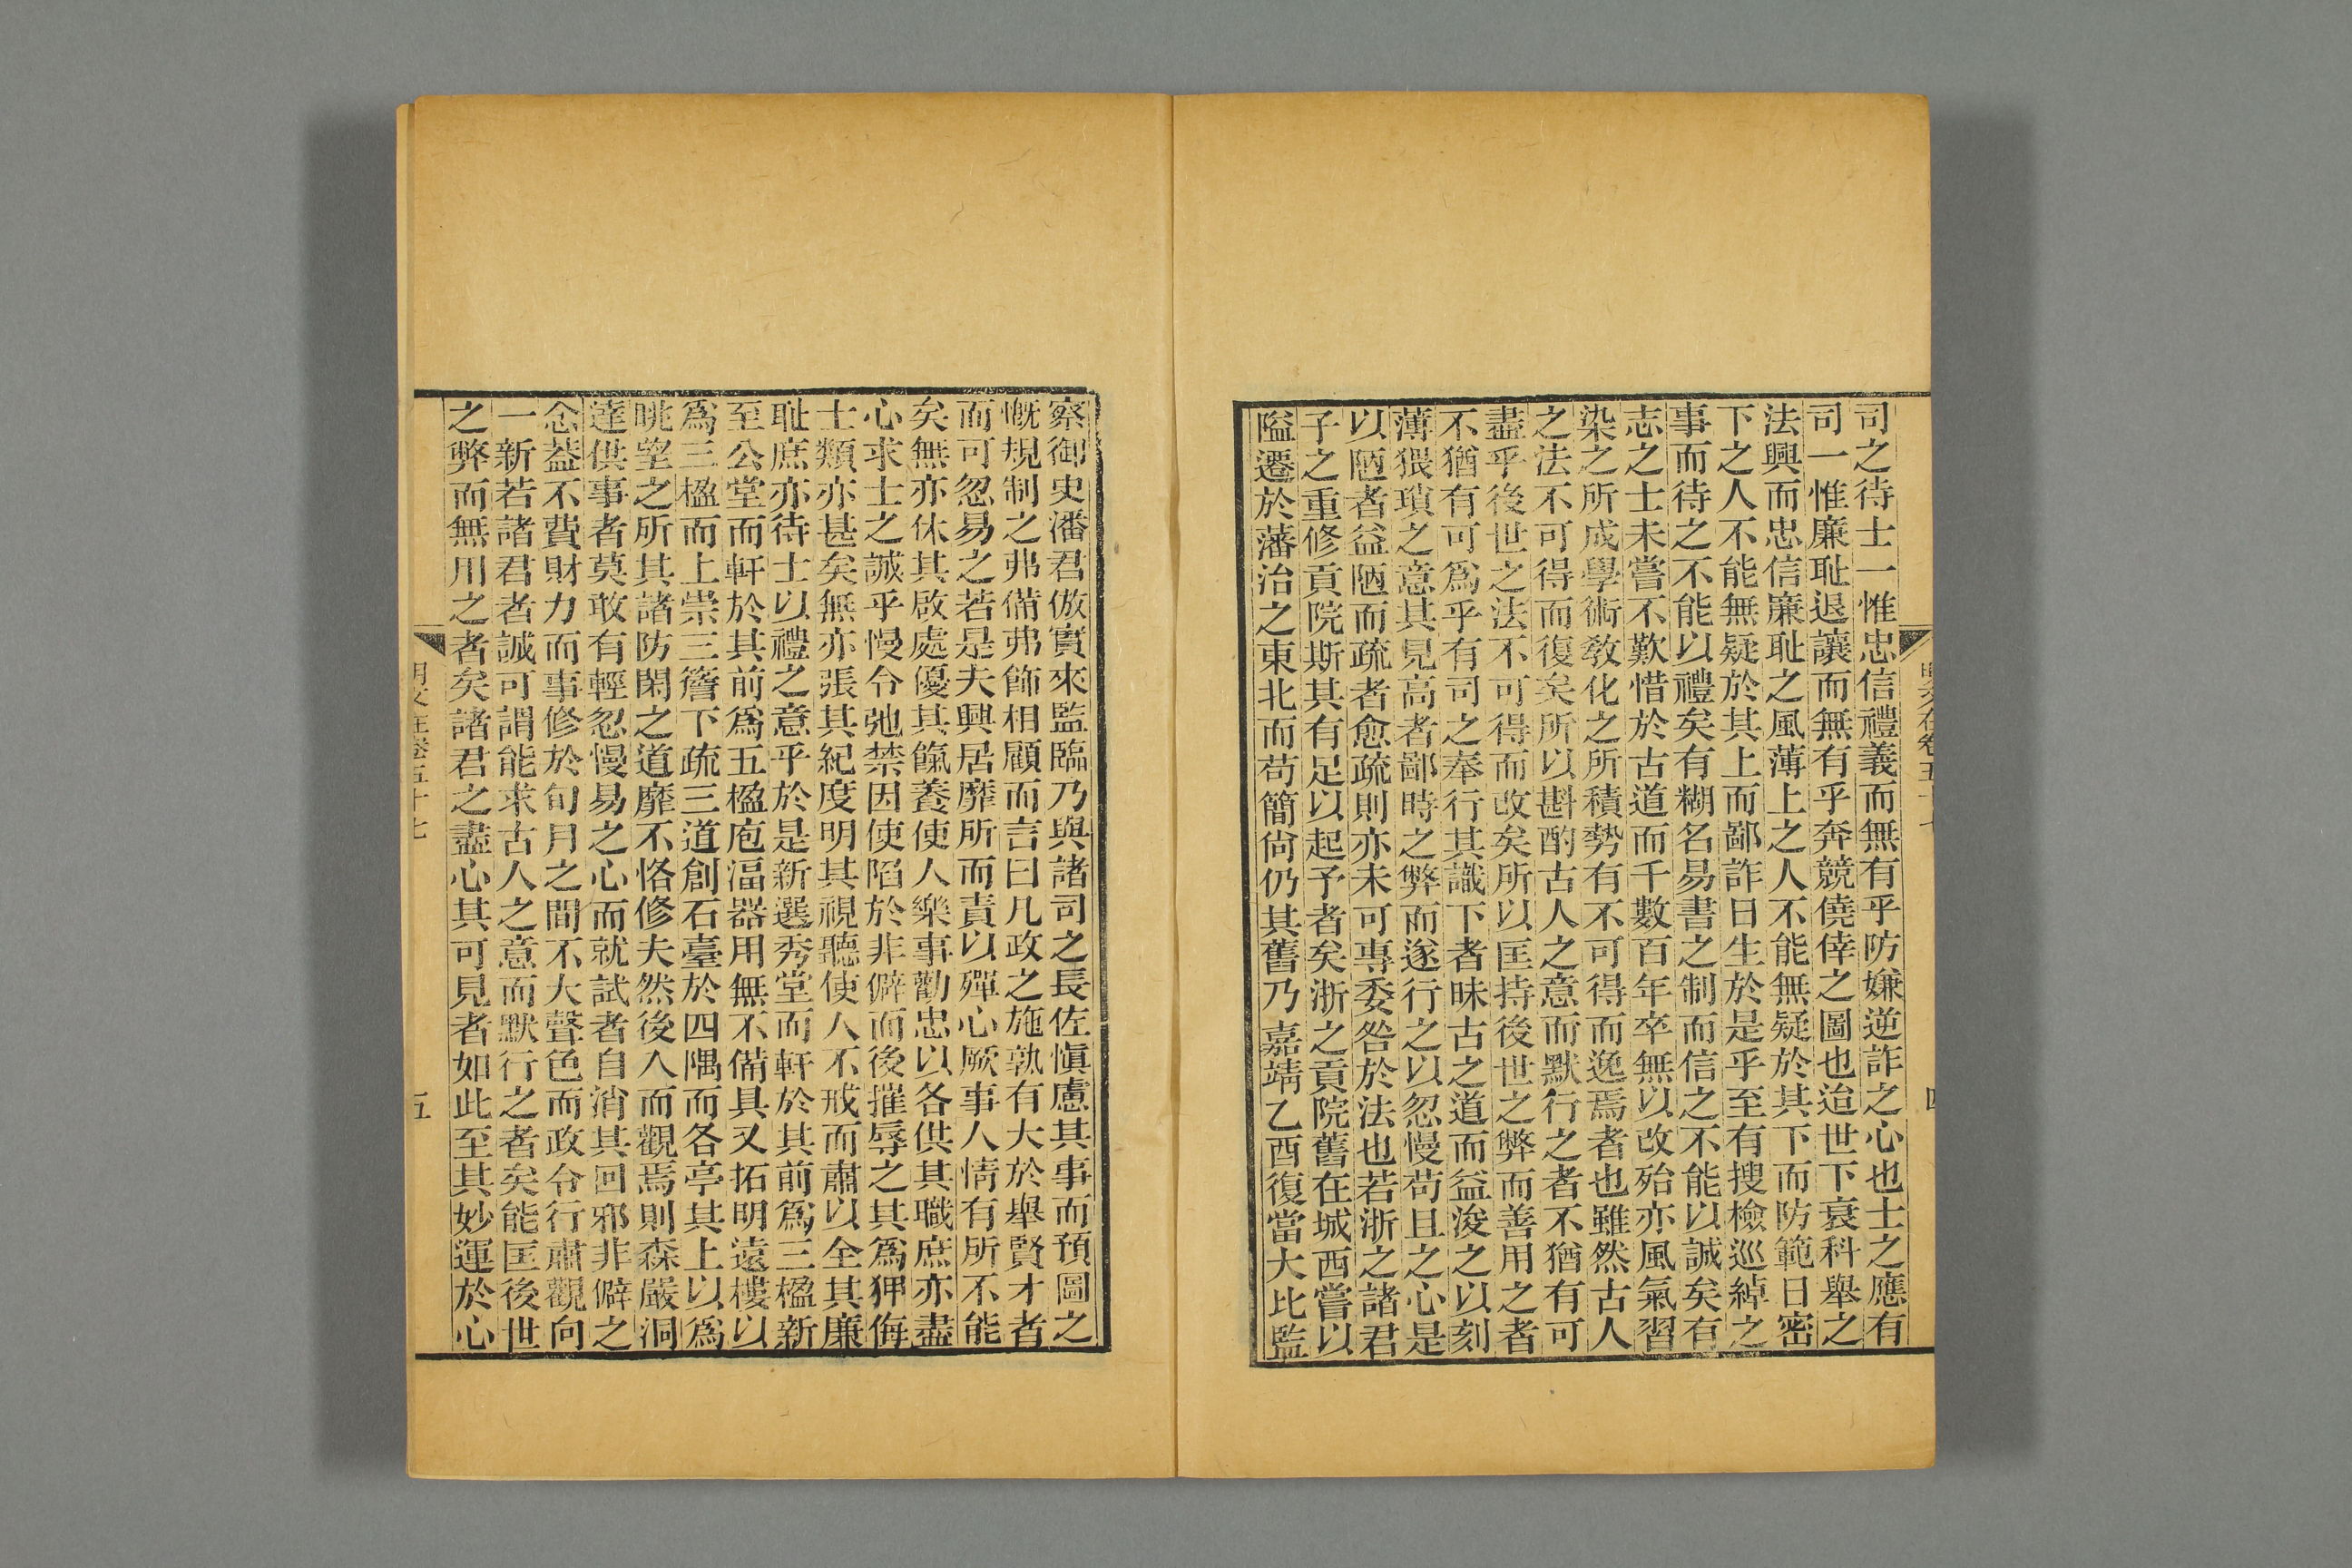 司之待士一惟忠信禮義而無有乎防嫌逆詐之心也士之應有
司一惟廉耻退讓而無有乎奔競僥倖之圖也迨世下衰科舉之
法興而忠信廉耻之風薄上之人不能無疑於其下而防範日密
下之人不能無疑於其上而鄙詐日生於是乎至有搜檢巡綽之
事而待之不能以禮矣有糊名易書之制而信之不能以誠矣有
志之士未嘗不歎惜於古道而千數百年卒無以改殆亦風氣習
染之所成學術教化之所積勢有不可得而逸焉者也雖然古人
之法不可得而復矣所以斟酌古人之意而默行之者不猶有可
盡乎後世之法不可得而改矣所以匡持後世之弊而善用之者
不猶有可爲乎有司之奉行其識下者昧古之道而益浚之以刻
薄猥瑣之意其見高者鄙時之弊而遂行之以忽慢苟且之心是
以陋者益陋而疏者愈疏則亦未可專委咎於法也若浙之諸君
子之重修貢院斯其有足以起予者矣浙之貢院舊在城西嘗以
隘遷於藩治之東北而苟簡尙仍其舊乃嘉靖乙酉復當大比監
四
察御史潘君倣實來監臨乃與諸司之長佐愼慮其事而預圖之
慨規制之弗備弗飾相顧而言曰凡政之施孰有大於舉賢才者
而可忽易之若是夫興居靡所而責以殫心厥事人情有所不能
矣無亦休其啟處優其餼養使人樂事勸忠以各供其職庶亦盡
心求士之誠乎慢令弛禁因使陷於非僻而後摧辱之其爲狎侮
士類亦甚矣無亦張其紀度明其視聽使人不戒而肅以全其廉
耻庶亦待士以禮之意乎於是新選秀堂而軒於其前爲三楹新
至公堂而軒於其前爲五楹庖湢器用無不備具又拓明遠樓以
爲三楹而上崇三簷下疏三道創石臺於四隅而各亭其上以爲
眺望之所其諸防閑之道靡不恪修夫然後入而觀焉則森嚴洞
達供事者莫敢有輕忽慢易之心而就試者自消其回邪非僻之
念葢不費財力而事修於旬月之間不大聲色而政令行肅觀向
一新若諸君者誠可謂能求古人之意而默行之者矣能匡後世
之弊而無用之者矣諸君之盡心其可見者如此至其妙運於心
明文在卷五十七
五